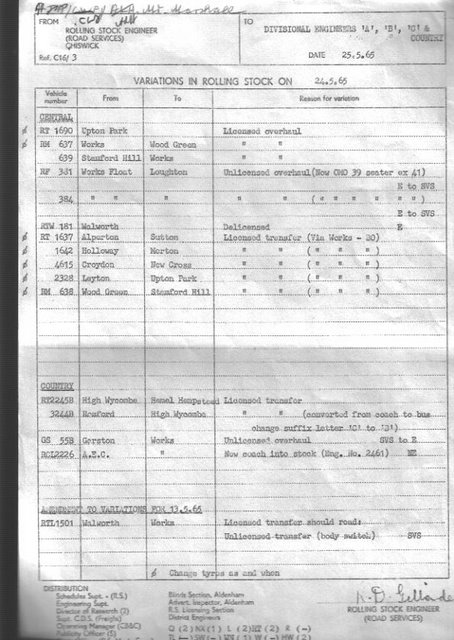 FROM
ROLLING STOCK ENGINEER
(ROAD SERVICES)
CHISWICK
Ref. C16/ 3
TO
DIVISIONAL ENGINEERS 'A', 'B', 'C' &
COUNTRY
DATE 25.5.65
VARIATIONS IN ROLLING STOCK ON 24.5.65
Vehicle number From To Reason for variation
CENTRAL
ø RT 1690 Upton Park Licensed overhaul
ø RM 637 Works Wood Green " "
639 Stamford Hill Works " "
RF 381 Works Float Loughton Unlicensed overhaul(Now OMO 39 seater ex 41)
E to SVS
384 " " " " " ( " " " " ")
E to SVS
RTW 181 Walworth Delicensed E
ø RT 1637 Alperton Sutton Licensed transfer (Via Works - 30)
ø 1642 Holloway Merton " " ( " " " )
ø 4615 Croydon New Cross " " ( " " " )
ø 2328 Leyton Upton Park " " ( " " " )
ø RM 638 Wood Green Stamford Hill " " ( " " " )
COUNTRY
RT2245B High Wycombe Hemel Hempstead Licensed transfer
3244B Romford High Wycombe " " (converted from coach to bus
change suffix letter 'C' to 'B')
GS 55B Garston Works Unlicensed overhaul SVS to E
RCL2226 A.E.C. " New coach into stock (Eng. No. 2461) NE
AMENDMENT TO VARIATIONS FOR 13.5.65
RTL1501 Walworth Works Licensed transfer should read:
Unlicensed transfer (body switch) SVS
ø Change tyres as and when
DISTRIBUTION
Schedules Supt. - (R.S.)
Engineering Supt.
Director of Research (2)
Supt. C.D.S. (Freight)
Operating Manager (CB&C)
Publicity Officer (5)
Blinds Section, Aldenham
Advert. Inspector, Aldenham
R.S. Licensing Section
District Engineers
Q (2) NX(1) L (2)HT R (-)
ROLLING STOCK ENGINEER
(ROAD SERVICES)